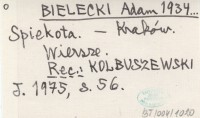 BIELECKI Adam 1934...
Spiekota. – Kraków.
Wiersze.
Rec.: KOLBUSZEWSKI
J. 1975, s. 56.
IBT/004/1020